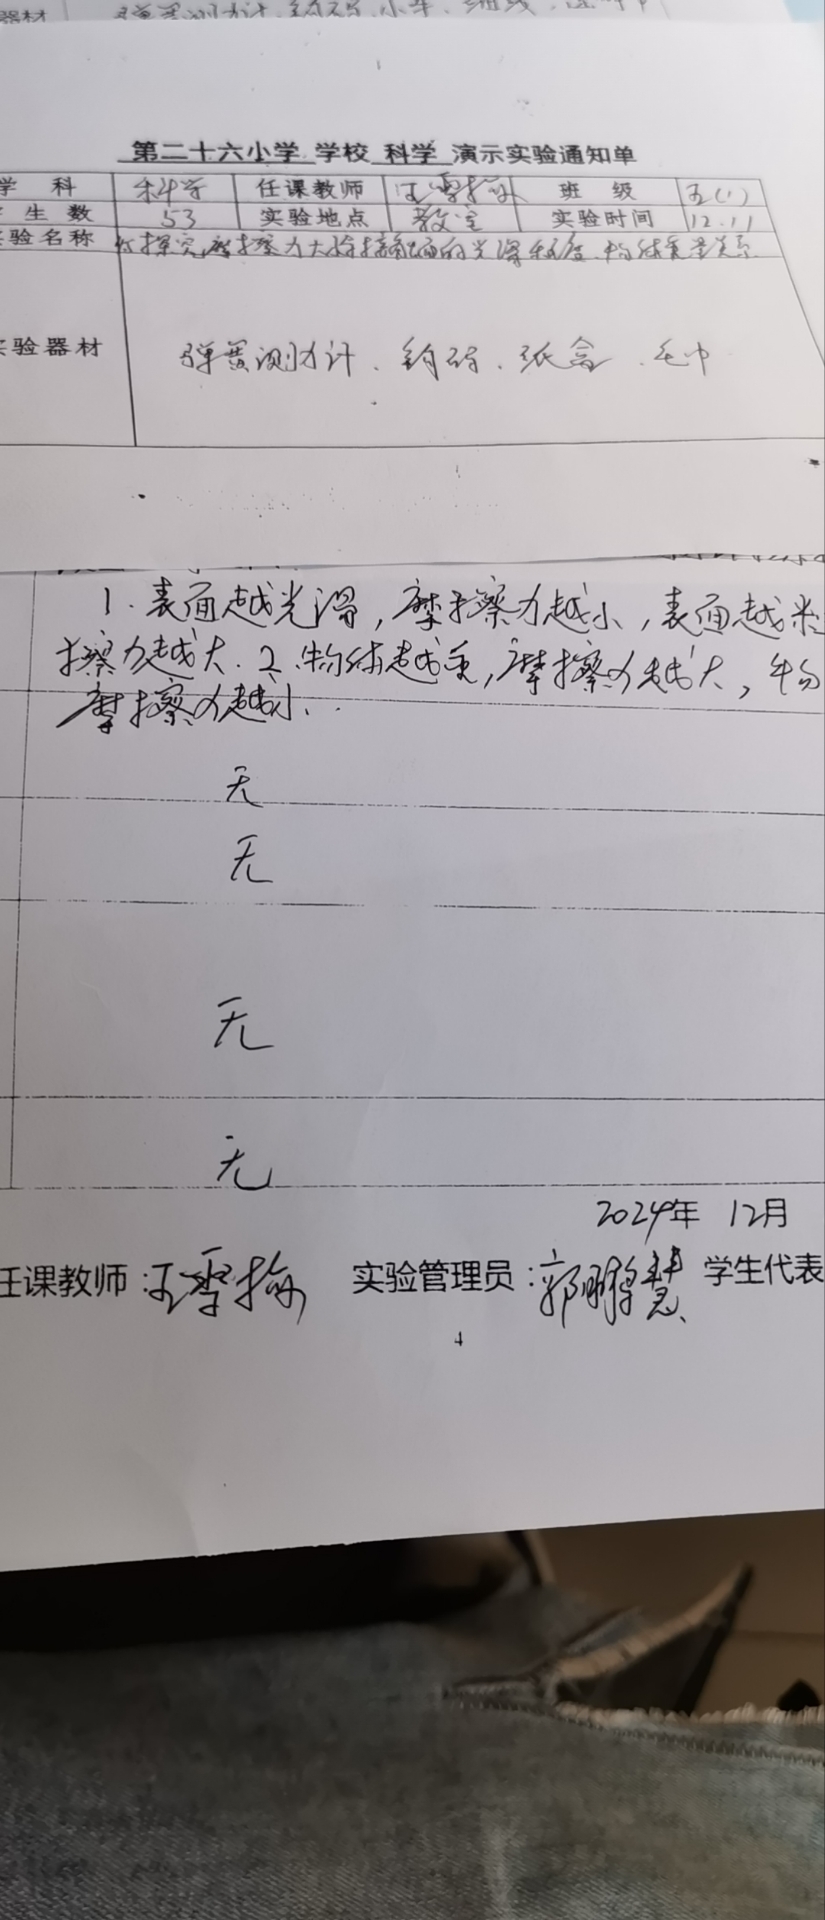 器材 弹簧测力计、钩码、小车、细线、
第二十六小学 学校 科学 演示实验通知单
学 科 科学 任课教师 王雪梅 班 级 五(1)
生 数 53 实验地点 教室 实验时间 12.11
验名称 探究摩擦力大小与接触面的光滑程度、物体重量关系
实验器材 弹簧测力计、钩码、纸盒、毛巾
1.表面越光滑,摩擦力越小,表面越
擦力越大.2.物体越重,摩擦力越大,物
摩擦力越小.
无
无
无
无
2024年 12月
任课教师:王雪梅 实验管理员:郭 慧 学生代表